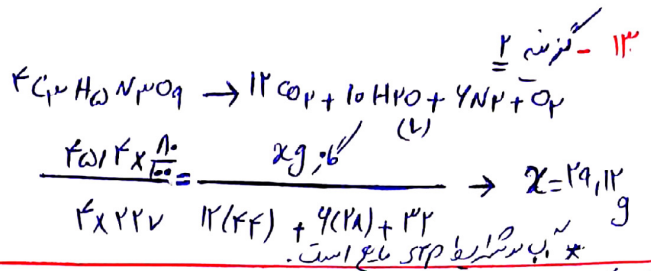 ۱۳ - گزینه ۲
۴C۳H۵N۳O۹ → ۱۲CO۲ + ۱۰H۲O + ۶N۲ + O۲
(L)
۴۵٫۴ × ۸۰/۱۰۰ / ۴×۲۲۷ = xg گاز / ۱۲(۴۴) + ۶(۲۸) + ۳۲ → x = ۲۹,۱۲ g
* آب در شرایط STP مایع است.